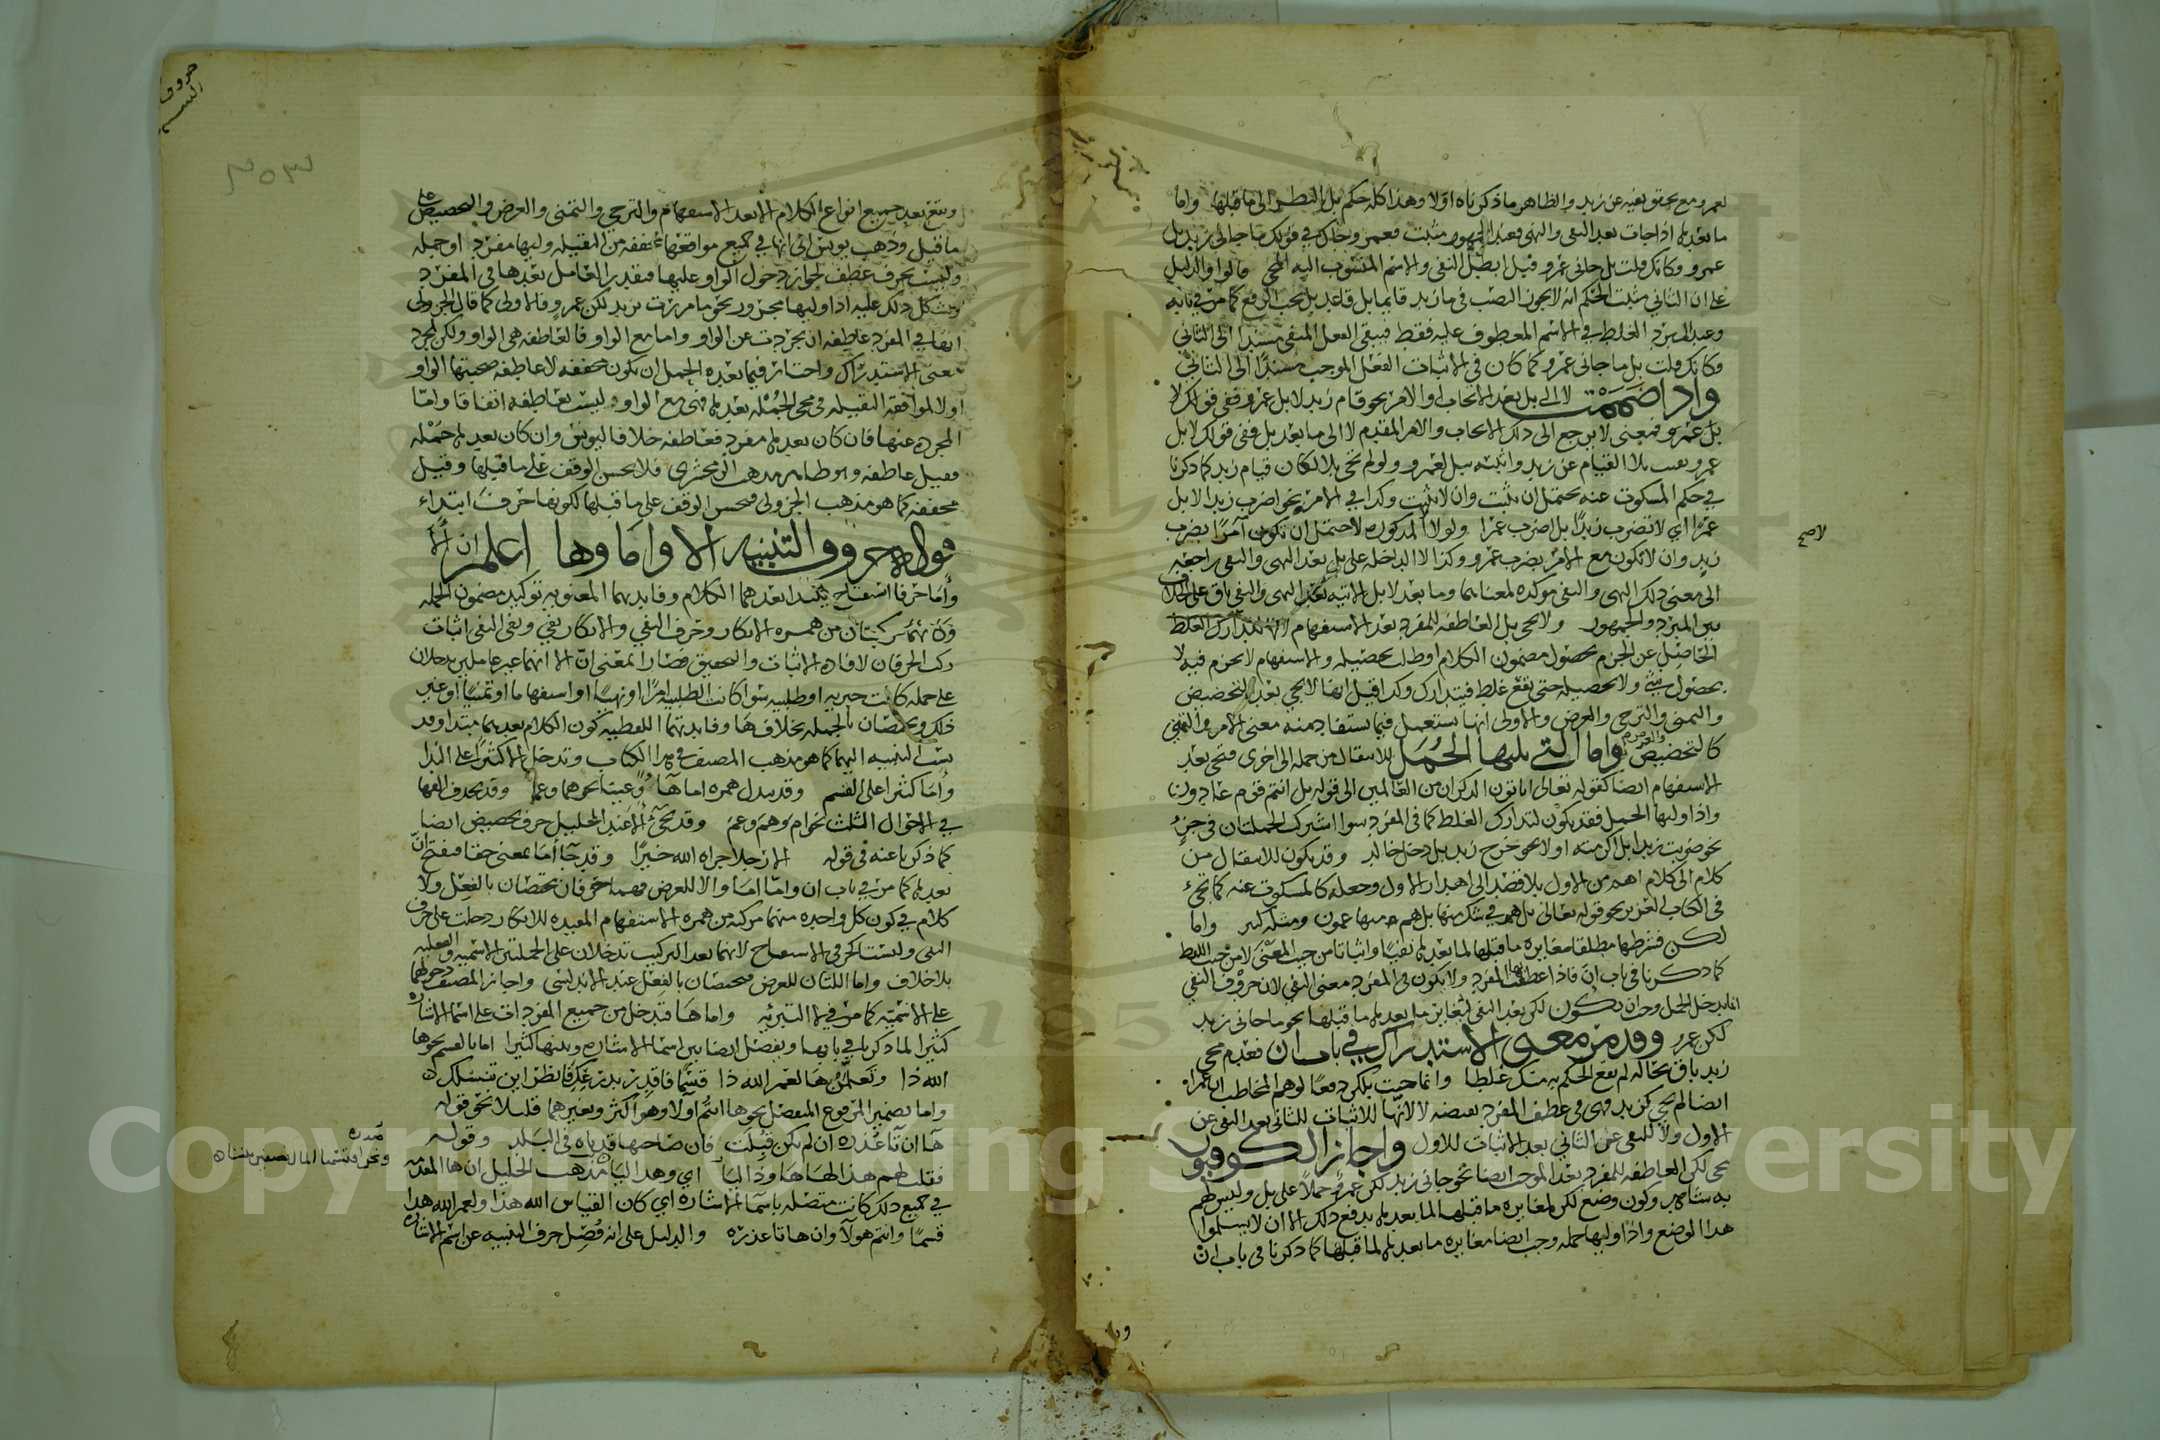 لعمرو مع تحقق نفيه عن زيد والظاهر ما ذكرناه اولا وهذا كله حكم بل بالنظر الى ما قبلها واما
ما بعد بل اذا جات بعد النفي والنهي فعند الجمهور مثبت فعمرو جاك في قولك ما جاني زيد بل
عمرو وكانك قلت بل جاني عمرو قيل ابطل النفي والاسم المنسوب اليه المجي قالوا والدليل
على ان الثاني مثبت الحكم انه لا يجوز النصب في ما زيد قايما بل قاعد بل يجب الرفع كما مر في بابه
وعند المبرد الغلط في الاسم المعطوف عليه فقط فيبقى الفعل المنفي مسندا الى الثاني
وكانك قلت بل ما جاني عمرو كما كان في الاثبات الفعل الموجب مسندا الى الثاني
واذا ضممت لا الى بل بعد الايجاب او الامر نحو قام زيد لا بل عمرو ففي قولك لا
بل عمرو فمعنى لا يرجع الى ذلك الايجاب والامر المقدم لا الى ما بعد بل ففي قولك لا بل
عمرو نفيت بلا القيام عن زيد واثبته ببل لعمرو ولو لم تجي بلا لكان قيام زيد كما ذكرنا
في حكم المسكوت عنه يحتمل ان يثبت وان لا يثبت وكذا في الامر نحو اضرب زيدا لا بل
عمرا اي لا تضرب زيدا بل اضرب عمرا ولولا لا المذكوره لاحتمل ان تكون آمرا بضرب
زيد وان لا تكون مع الامر بضرب عمرو وكذا لا الداخله على بل بعد النهي والنفي راجعه
الى معنى ذلك النهي والنفي موكده لمعناهما وما بعد لا بل الاتيه بعد النهي والنفي باق على الخلاف
بين المبرد والجمهور ولا تجي بل العاطفه للمفرد بعد الاستفهام لانها لتدارك الغلط
الحاصل عن الجزم بحصول مضمون الكلام او طلب تحصيله والاستفهام لا جزم فيه لا
بحصول شي ولا بتحصيله حتى يقع غلط فيتدارك وكذا قيل انها لا تجي بعد التحضيض
والتمني والترجي والعرض والاولى انها تستعمل فيما يستفاد منه معنى الامر والنهي
كالتحضيض والعرض واما التي يليها الجمل للانتقال من جمله الى اخرى وتجي بعد
الاستفهام ايضا كقوله تعالى اتاتون الذكران من العالمين الى قوله بل انتم قوم عادون
واذا وليها الجمل فقد يكون لتدارك الغلط كما في المفرد سوا اشترك الجملتان في جزء
نحو ضربت زيدا بل اكرمته اولا نحو خرج زيد بل دخل خالد وقد يكون للانتقال من
كلام الى كلام اهم من الاول بلا قصد الى اهدار الاول وجعله كالمسكوت عنه كما تجيء
في الكتاب العزيز نحو قوله تعالى بل هم في شك منها بل هم منها عمون ومثله كثير واما
لكن فشرطها مطلقا مغايره ما قبلها لما بعدها نفيا واثباتا من حيث المعنى لا من حيث اللفظ
كما ذكرنا في باب ان فاذا عطفت بها المفرد ولا يكون في المفرد معنى النفي لان حروف النفي
انما تدخل الجمل وجب ان يكون لكن بعد النفي لتغاير ما بعدها ما قبلها نحو ما جاني زيد
لكن عمرو وقد مر معنى الاستدراك في باب ان فعدم مجي
زيد باق بحاله لم يقع الحكم به منك غلطا وانما جيت بلكن دفعا لوهم المخاطب ان عمرا
ايضا لم يجي كزيد فهي في عطف المفرد نقيضه لا لانها للاثبات للثاني بعد النفي عن
الاول ولا للنفي عن الثاني بعد الاثبات للاول واجاز الكوفيون
مجي لكن العاطفه للمفرد بعد الموجب ايضا نحو جاني زيد لكن عمرو حملا على بل وليس لهم
به شاهد وكون وضع لكن لمغايره ما قبلها لما بعدها يدفع ذلك الا ان لا يسلموا
هذا الوضع واذا وليها جمله وجب ايضا مغايره ما بعدها لما قبلها كما ذكرنا في باب ان
لا صح
حروف
التنبيه
وتقع بعد جميع انواع الكلام الا بعد الاستفهام والترجي والتمني والعرض والتحضيض على
ما قيل وذهب يونس الى انها في جميع مواقعها مخففه من الثقيله وليها مفرد او جمله
وليست بحرف عطف لجواز دخول الواو عليها فيقدر العامل بعدها في المفرد
ويشكل ذلك عليه اذا وليها مجرور نحو ما مررت بزيد لكن عمرو والاولى كما قال الجزولي
انها في المفرد عاطفه ان تجردت عن الواو واما مع الواو فالعاطفه هي الواو ولكن لمجرد
معنى الاستدراك واختار فيما بعده الجمل ان تكون مخففه لا عاطفه صحبتها الواو
اولا لموافقة الثقيله في مجي الجمله بعدها فهي مع الواو ليست بعاطفه اتفاقا واما
المجرده عنها فان كان بعدها مفرد فعاطفه خلافا ليونس وان كان بعدها جمله
فقيل عاطفه وهو ظاهر مذهب الزمخشري فلا يحسن الوقف على ما قبلها وقيل
مخففه كما هو مذهب الجزولي فيحسن الوقف على ما قبلها لكونها حرف ابتداء
قوله حروف التنبيه الا واما وها اعلم ان الا
وأما حرفا استفتاح يبتدا بعدهما الكلام وفايدتهما المعنويه توكيد مضمون الجمله
وكانهما مركبتان من همزه الانكار وحرف النفي والانكار نفي ونفي النفي اثبات
ركب الحرفان لافاده الاثبات والتحقيق فصارا بمعنى ان الا انهما غير عاملين يدخلان
على جمله كانت خبريه او طلبيه سوا كانت الطلبيه امرا او نهيا او استفهاما او تمنيا او غير
ذلك ويختصان بالجمله بخلاف ها وفايدتهما اللفظيه كون الكلام بعدهما مبتدا وقد
نسب التنبيه اليهما كما هو مذهب المصنف في هذا الكتاب وتدخل الا كثيرا على الندا
وأما كثيرا على القسم وقد تبدل همزه اما ها وعينا نحو هما وعما وقد تحذف الفها
في الاحوال الثلث نحو ام وهم وعم وقد تجيء الا عند الخليل حرف تحضيض ايضا
كما ذكرنا عنه في قوله الا رجلا جزاه الله خيرا وقد جا أما بمعنى حقا فتفتح ان
بعدها كما مر في باب ان واما اما والا للعرض فهما حرفان يختصان بالفعل ولا
كلام في كون كل واحده منهما مركبه من همزه الاستفهام المفيده للانكار دخلت على حرف
النفي وليستا كحرفي الاستفتاح لانهما بعد التركيب تدخلان على الجملتين الاسميه والفعليه
بلا خلاف واما اللتان للعرض فتختصان بالفعل عند الاندلسي واجاز المصنف دخولهما
على الاسميه كما مر في لا التبرئه واما ها فتدخل من جميع المفردات على اسما الاشاره
كثيرا لما ذكرنا في بابها ويفصل ايضا بين اسما الاشاره وبينها كثيرا اما بالقسم نحو ها
الله ذا وتعلمن ها لعمر الله ذا قسما فاقدر بذرعك فانظر اين تنسلك
واما بضمير المرفوع المنفصل نحو ها انتم اولا وهو اكثر وبغيرهما قليلا نحو قوله
ها ان تا عذره ان لم تكن قبلت فان صاحبها قد تاه في البلد وقوله
فقلت لهم هذا لها ها وذا ليا اي وهذا ليا مذهب الخليل ان ها المقدمه
في جميع ذلك كانت متصله باسما الاشاره اي كان القياس الله هذا ولعمر الله هذا
قسما وانتم هولا وان هاتا عذره والدليل على انه فصل حرف التنبيه عن اسم الاشاره
ونحن اقتسمنا المال نصفين بيننا